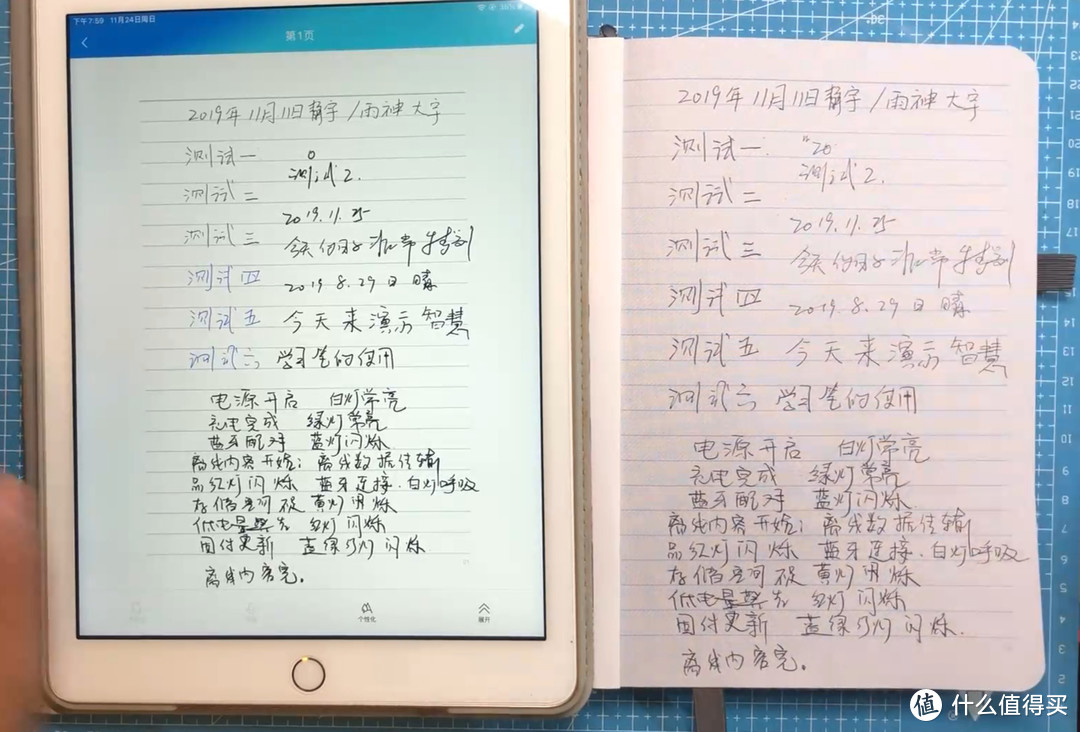 下午7:59 11月24日周日
36%
第1页
2019年11月11日 /雨神大字
测试一 0
测试2.
测试二
2019.11.25
测试三 今天 非常特别
测试四 2019.8.29日晴
测试五 今天来演示智慧
测试六 学习笔的使用
电源开启 白灯常亮
充电完成 绿灯常亮
蓝牙配对 蓝灯闪烁
离线内容开始: 离线数据传输
品红灯闪烁 蓝牙连接.白灯呼吸
存储空间 黄灯闪烁
低电量 红灯闪烁
固件更新 蓝绿灯闪烁
离线内容完.
个性化
展开
2019年11月11日 /雨神大字
测试一. "20
测试2.
测试二
2019.11.25
测试三 今天 非常特别
测试四 2019.8.29日晴
测试五 今天来演示智慧
测试六 学习笔的使用
电源开启 白灯常亮
充电完成 绿灯常亮
蓝牙配对 蓝灯闪烁.
离线内容开始: 离线数据传输
品红灯闪烁 蓝牙连接.白灯呼吸
存储空间 黄灯闪烁
低电量 红灯闪烁
固件更新 蓝绿灯闪烁.
离线内容完.
值 什么值得买